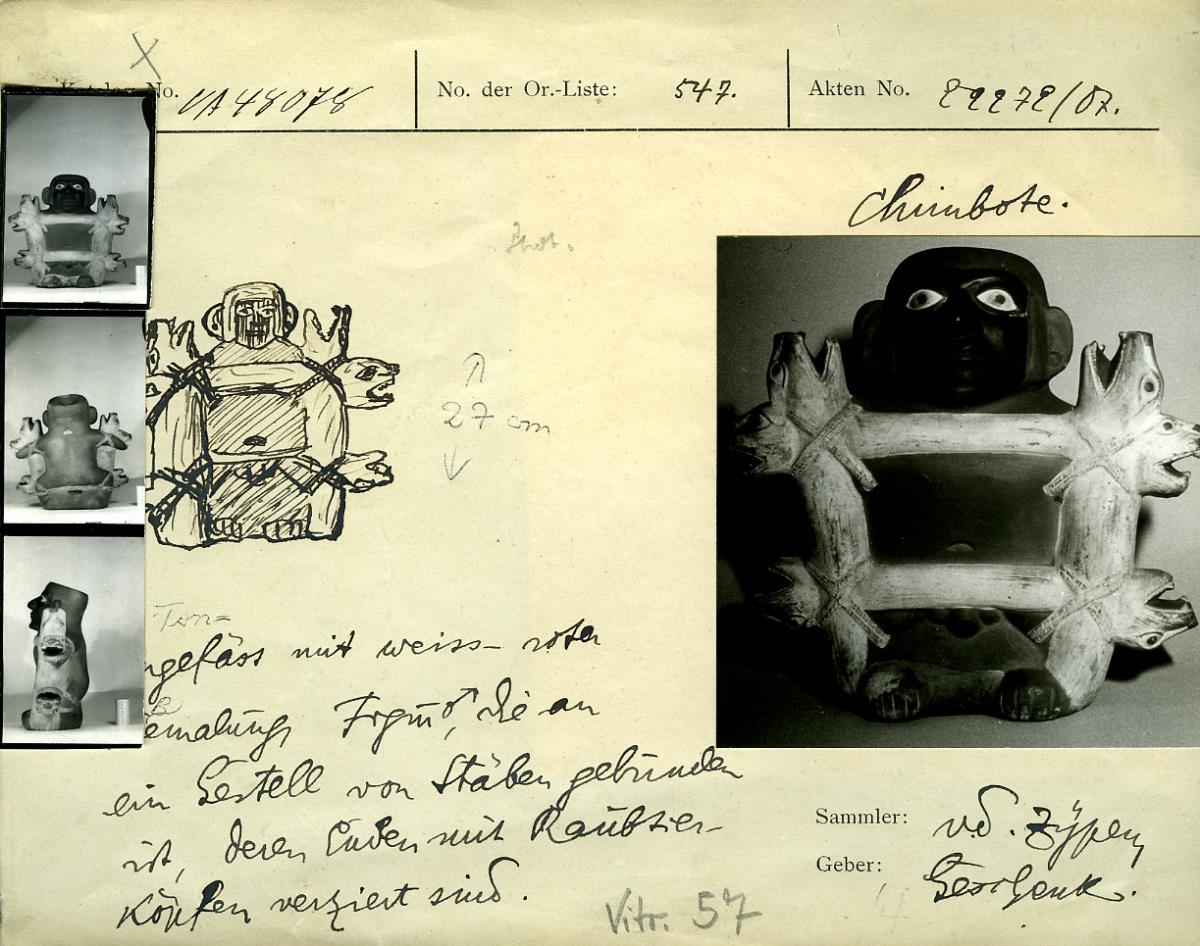 Katalog No. VA 48078 No. der Or.-Liste: 547. Akten No.
Chimbote.
27 cm
Ton-
gefäss mit weiss-roter
Bemalung, Figur ♂, die an
ein Gestell von Stäben gebunden
ist, deren Enden mit Raubtier-
köpfen verziert sind.
Sammler: v. d. Zypen
Geber: Geschenk.
Vitr. 57